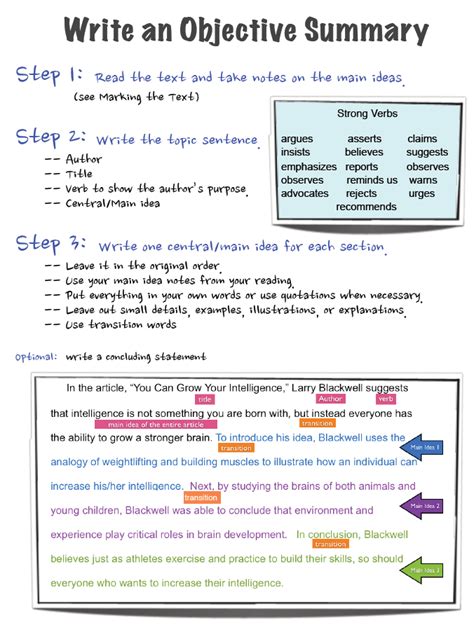 Write an Objective Summary
Step 1: Read the text and take notes on the main ideas.
(see Marking the Text)
Strong Verbs
argues asserts claims
insists believes suggests
emphasizes reports observes
observes reminds us warns
advocates rejects urges
recommends
Step 2: Write the topic sentence.
-- Author
-- Title
-- Verb to show the author's purpose.
-- Central/Main idea
Step 3: Write one central/main idea for each section.
-- Leave it in the original order.
-- Use your main idea notes from your reading.
-- Put everything in your own words or use quotations when necessary.
-- Leave out small details, examples, illustrations, or explanations.
-- Use transition words
Optional: write a concluding statement
In the article, “You Can Grow Your Intelligence,” Larry Blackwell suggests
title Author verb
that intelligence is not something you are born with, but instead everyone has
main idea of the entire article transition
the ability to grow a stronger brain. To introduce his idea, Blackwell uses the
transition Main Idea 1
analogy of weightlifting and building muscles to illustrate how an individual can
increase his/her intelligence. Next, by studying the brains of both animals and
transition Main Idea 2
young children, Blackwell was able to conclude that environment and
experience play critical roles in brain development. In conclusion, Blackwell
transition
believes just as athletes exercise and practice to build their skills, so should
Main Idea 3
everyone who wants to increase their intelligence.